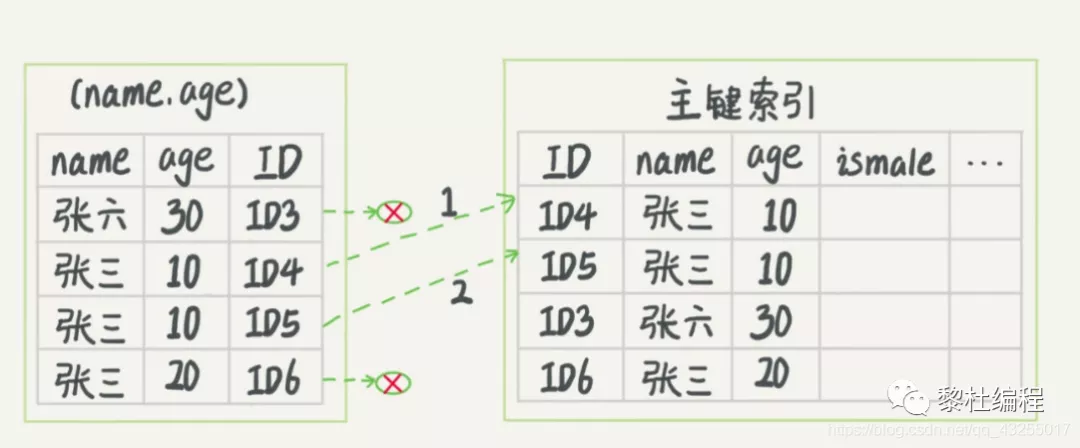 (name,age)
name age ID
张六 30 ID3
张三 10 ID4
张三 10 ID5
张三 20 ID6
1
2
主键索引
ID name age ismale ...
ID4 张三 10
ID5 张三 10
ID3 张六 30
ID6 张三 20
黎杜编程
https://blog.csdn.net/qq_43255017